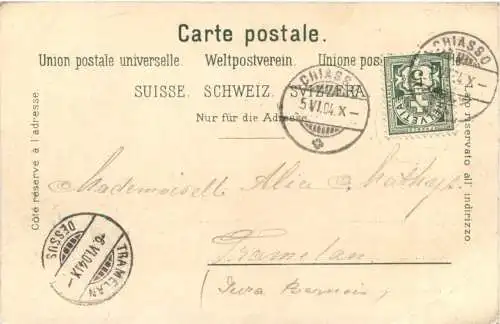 Carte postale.
Union postale universelle. Weltpostverein. Unione postale
SUISSE. SCHWEIZ. SVIZZERA.
Nur für die Adresse
Côté réservé à l'adresse.
Lato riservato all' indirizzo
CHIASSO
5.VI.04.X-
CHIASSO
04.X-
5
HELVETIA
Mademoiselle Alice
Tramelan
(Jura Bernois)
TRAMELAN
-6.VI.04.IX-
DESSUS